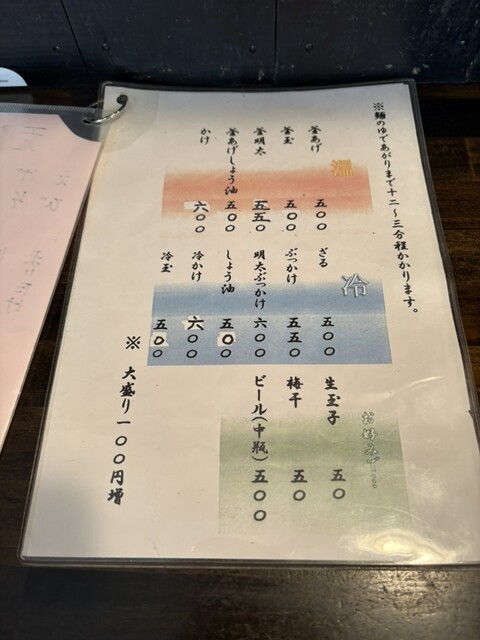 ※麺のゆであがりまで十二~三分程かかります。
温
釜あげ 五〇〇
釜玉 五〇〇
釜明太 五五〇
釜あげしょう油 五〇〇
かけ 六〇〇
冷
ざる 五〇〇
ぶっかけ 五五〇
明太ぶっかけ 六〇〇
しょう油 五〇〇
冷かけ 六〇〇
冷玉 五〇〇
お好みで…
生玉子 五〇
梅干 五〇
ビール(中瓶) 五〇〇
※ 大盛り一〇〇円増